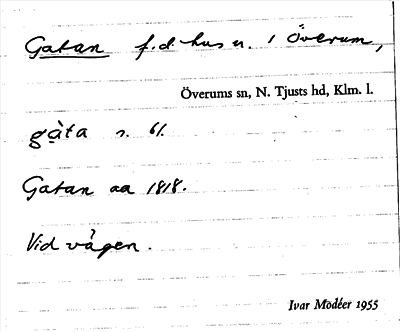 Gatan f.d. hus u. / Överum,
Överums sn, N. Tjusts hd, Klm. l.
gạ̀ta s. 61.
Gatan aa 1818.
Vid vägen.
Ivar Modéer 1955